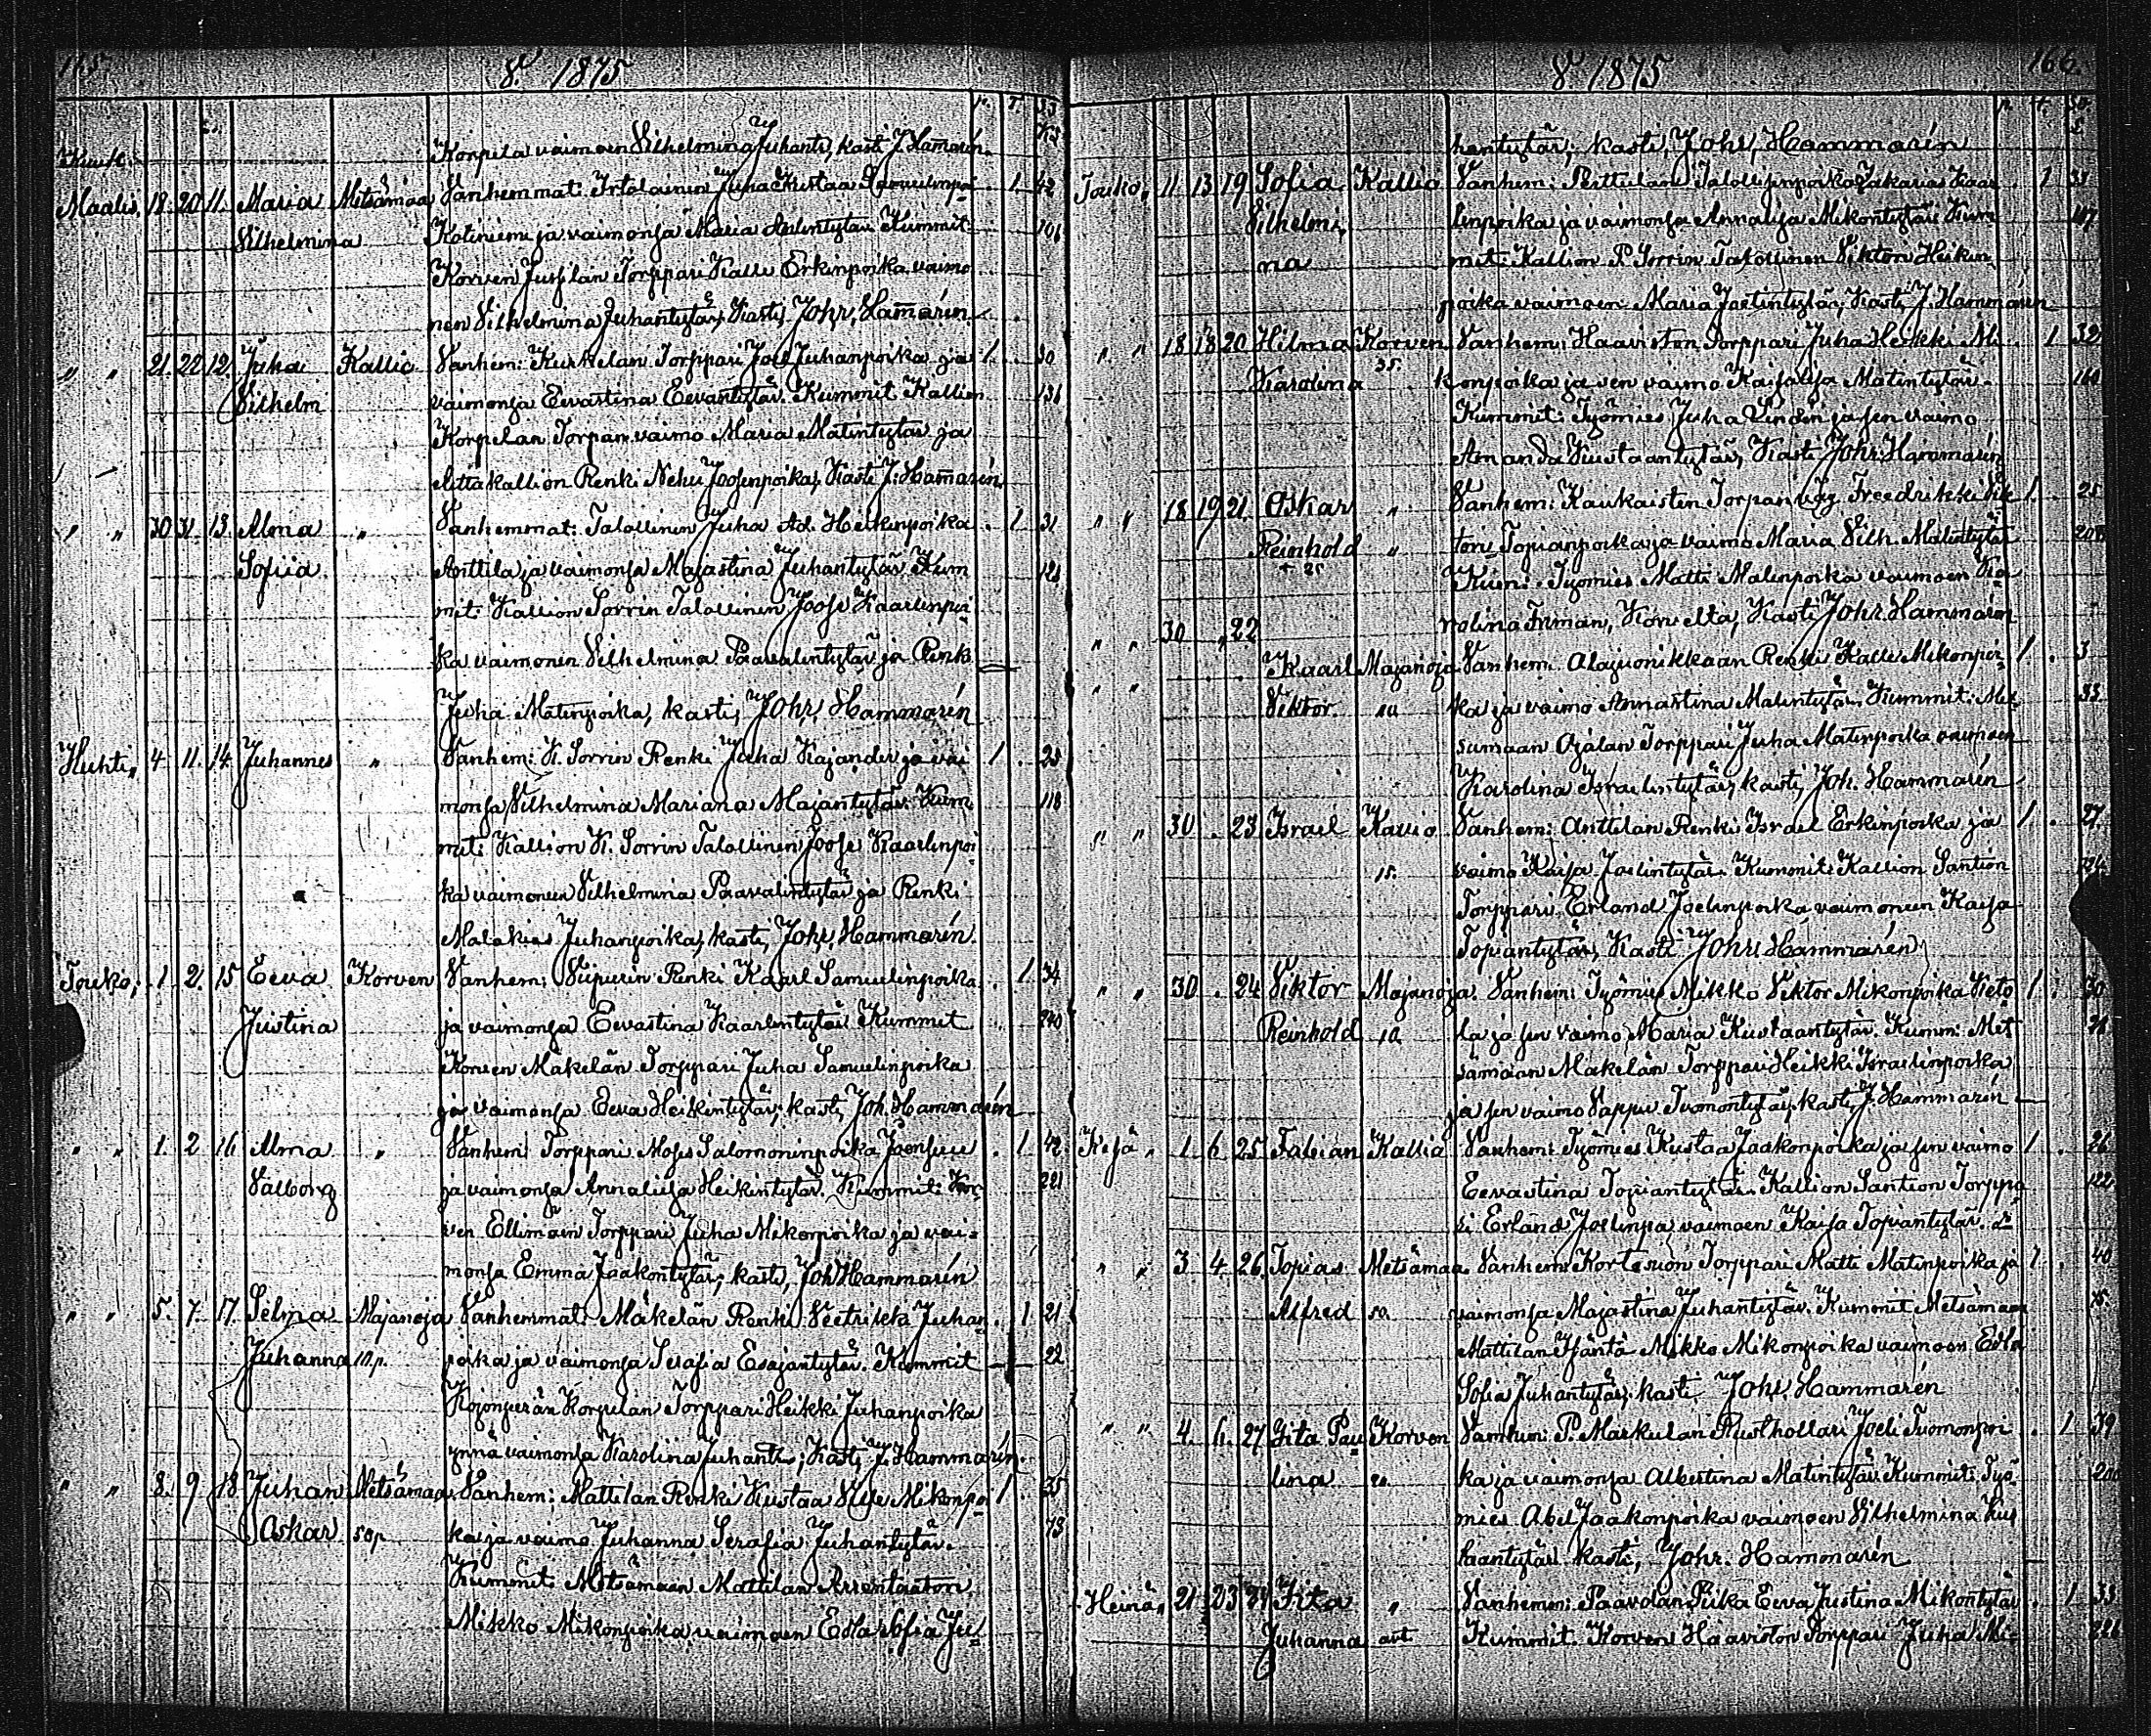 165
V 1875
Kuuk.
Korpela vaimoen Vilhelmina Juhantr, kasti J. Hamarén.
Maalis. 18. 20. 11. Maria Metsämaa Vanhemmat: Juha Kustaa 1 42
Vilhelmina ja vaimonsa Maria Kummit: 106
Korven Torppari Kalle Erkinpoika vaimo
nen Vilhelmina Juhantytär, Kasti, Johr, Hamarén.
" " 21. 22. 12. Juha Kallio Vanhem: Kurkelan Torppari Joel Juhanpoika ja 1. 30
Vilhelm vaimonsa Eevastina Eevantytär. Kummit Kallion 136
Korpelan Torpan vaimo Maria Matintytär ja
kallion Renki Josenpoika, Kasti J. Hamarén.
" " 30 31. 13. Alma " Vanhemmat: Talollinen Juha Ad. Heikinpoika . 1 31
Sofiia Anttila ja vaimonsa Majastina Juhantytär. Kum
mit: Kallion Sorrin Talollinen Joose Kaarlenpoi
ka vaimonen Vilhelmina Paavalintytär ja Renki
Juha Matinpoika, kasti, Johr, Hammarén
Huhti, 4. 11. 14. Juhannes " Vanhem: K. Sorrin Renki Juha Kajander ja vai 1. 25
monsa Vilhelmina Mariana Majantytär. Kum 118
mit: Kallion K. Sorrin Talollinen Joose Kaarlenpoi
ka vaimonen Vilhelmina Paavalintytär ja Renki
Malakias Juhanpoika, kasti, Johr, Hammarén.
Touko, 1. 2. 15 Eeva Korven Vanhem: Viipurin Renki Kaarl Samuelinpoika . 1. 34
Justina ja vaimonsa Eevastina Kaarlentytär. Kummit 240
Korven Mäkelän Torppari Juha Samuelinpoika
ja vaimonsa Eeva Heikintytär; kasti, Joh. Hammarén
" " 1. 2 16 Alma " Vanhem: Torppari Moses Salomoninpoika Joensuu . 1 42
Valborg ja vaimonsa Annaliisa Heikintytär. Kummit: Kor- 221
ven Ellimäin Torppari Juha Mikonpoika ja vai=
monsa Emma Jaakontytär; kasti, Joh Hammarén
" " 5. 7. 17. Selma Majanoja Vanhemmat: Mäkelän Renki Juhan . 1 21
Juhanna 10 p. poika ja vaimonsa Serafia Esajantytär. Kummit 22
Kojonperän Korpelan Torppari Heikki Juhanpoika
ynnä vaimonsa Karoliina Juhantr; Kasti J. Hammarén.
" " 8. 9 18 Juhan Metsämaa Vanhem: Mattilan Renki Kustaa Mikonpoi 1. 35
Oskar 50p. ka ja vaimo Juhanna Serafia Juhantytär. 73
Kummit: Metsämaan Mattilan
Mikko Mikonpoika vaimoen Edla Sofia Ju
166.
V. 1875
hantytär; kasti, Johr, Hammarén
Touko, 11. 13. 19 Sofia Kallio Vanhem: Perttulan Talollisenpoika Sakarias Kaar . 1 31
Vilhelmi lenpoika ja vaimonsa Annaliisa Mikontytär. Kum
na mit: Kallion P. Sorrin Talollinen Viktori Heikin
poika vaimoen Maria Joelintytär, Kasti, J. Hammarén
" " 18 18 20 Hilma Korven Vanhem: Haaviston Torppari Juha Heikki Mi . 1 32
Karolina 35. konpoika ja sen vaimo Kaisaliisa Matintytär. 160
Kummit: Työmies Juha Linden ja sen vaimo
Amanda Kustaantytär, Kasti Johr. Hammarén
" " 18 19 21. Oskar " Vanhem: Kaukaisten Torpan Freedrikki Vik 1. 25
Reinhold " tori Topianpoika ja vaimo Maria Vilh. Matintytär 208
+ 25 Kum: Työmies Matti Matinpoika vaimoen Ka
" " 30 " 22 rolina Friman, Korvelta, Kasti Johr. Hammarén
" " Kaarl Majanoja Vanhem. Alajuonikkaan Renki Kalle Mikonpoi 1. 3
Viktor 10 ka ja vaimo Annastina Matintytär. Kummit: Met 33.
sämaan Ojalan Torppari Juha Matinpoika vaimoen
Karolina Israelintytär, kasti, Joh. Hammarén
" " 30 . 23 Israel Kallio Vanhem: Anttilan Renki Israel Erkinpoika ja 1. 27.
15. vaimo Kaisa Joelintytär. Kummit: Kallion Santion
Torppari Erland Joelinpoika vaimonen Kaisa
Topiantytär, Kasti Johr. Hammarén
" " 30 . 24 Viktor Majanoja. Vanhem: Työmies Mikko Viktor Mikonpoika Keto 1. 30
Reinhold 10. la ja sen vaimo Maria Kustaantytär. Kumm: Met
sämaan Mäkelän Torppari Heikki Israelinpoika
ja sen vaimo Vappu Tuomontytär, kasti, J. Hammarén
Kesä " 1 6 25 Fabian Kallio Vanhem: Työmies Kustaa Jaakonpoika ja sen vaimo 1. 26
Eevastina Topiantytär. Kallion Santion Torppa 122.
ri Erland Joelinpa vaimoen Kaisa Topiantytär.
" " 3 4 26. Topias Metsämaa Vanhem: Kortesuon Torppari Matti Matinpoika ja 1. 40
Alfred 50. vaimonsa Majastina Juhantytär. Kummit Metsämaan
Mattilan Isäntä Mikko Mikonpoika vaimoen Edla
Sofia Juhantytär; kasti Johr, Hammarén
" " 4. 6. 27 Iita Pau Korven Vanhem: P. Markulan Rusthollari Joeli Tuomonpoi . 1 39
lina 20. ka ja vaimonsa Albertina Matintytär. Kummit: Työ 200
mies Abel Jaakonpoika vaimoen Vilhelmina Kus
taantytär. kasti, Johr. Hammarén
Heinä, 21 23 Iita " Vanhemm: Paavolan Piika Eeva Justina Mikontytär . 1 33
Juhanna avt. Kummit. Korven Haaviston Torppari Juha Mi-